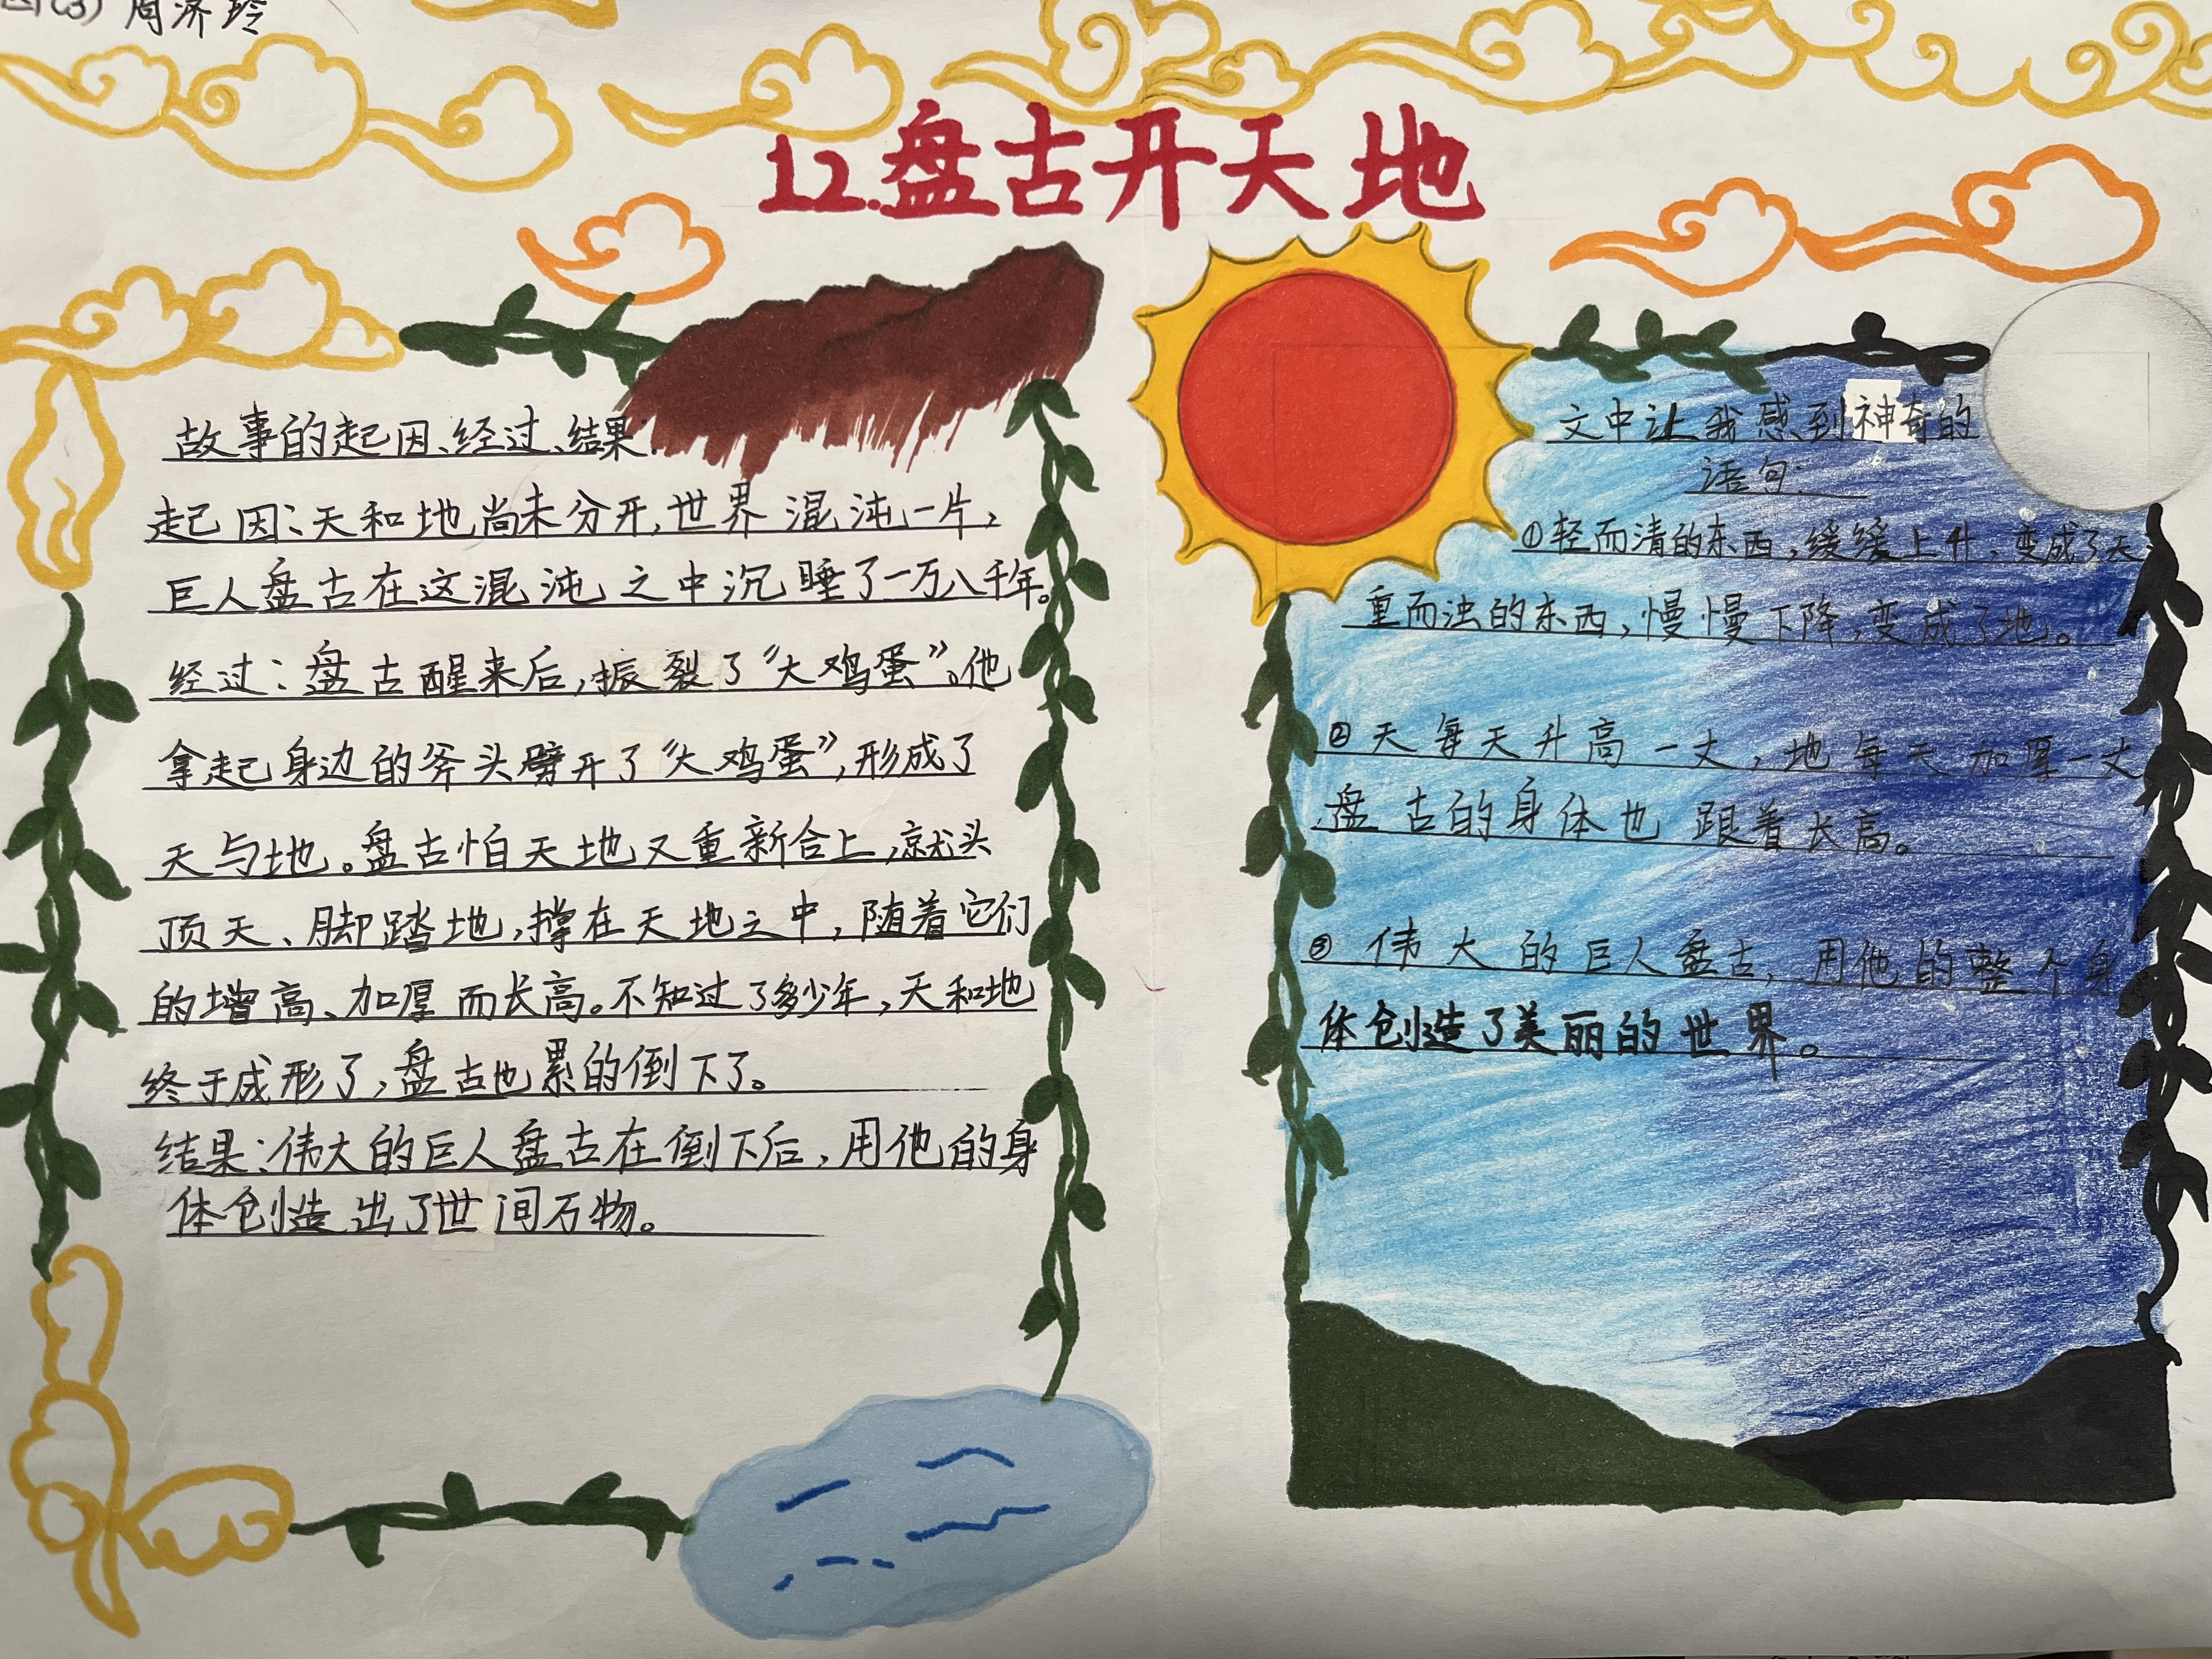 四(3) 周济玲
12.盘古开天地
故事的起因、经过、结果.
起因:天和地尚未分开,世界混沌一片,
巨人盘古在这混沌之中沉睡了一万八千年。
经过:盘古醒来后,振裂了“大鸡蛋”。他
拿起身边的斧头劈开了“大鸡蛋”,形成了
天与地。盘古怕天地又重新合上,就头
顶天、脚踏地,撑在天地之中,随着它们
的增高、加厚而长高。不知过了多少年,天和地
终于成形了,盘古也累的倒下了。
结果:伟大的巨人盘古在倒下后,用他的身
体创造出了世间万物。
文中让我感到神奇的
语句:
①轻而清的东西,缓缓上升,变成了天
重而浊的东西,慢慢下降,变成了地。
②天每天升高一丈,地每天加厚一丈
盘古的身体也跟着长高。
③伟大的巨人盘古,用他的整个身
体创造了美丽的世界。